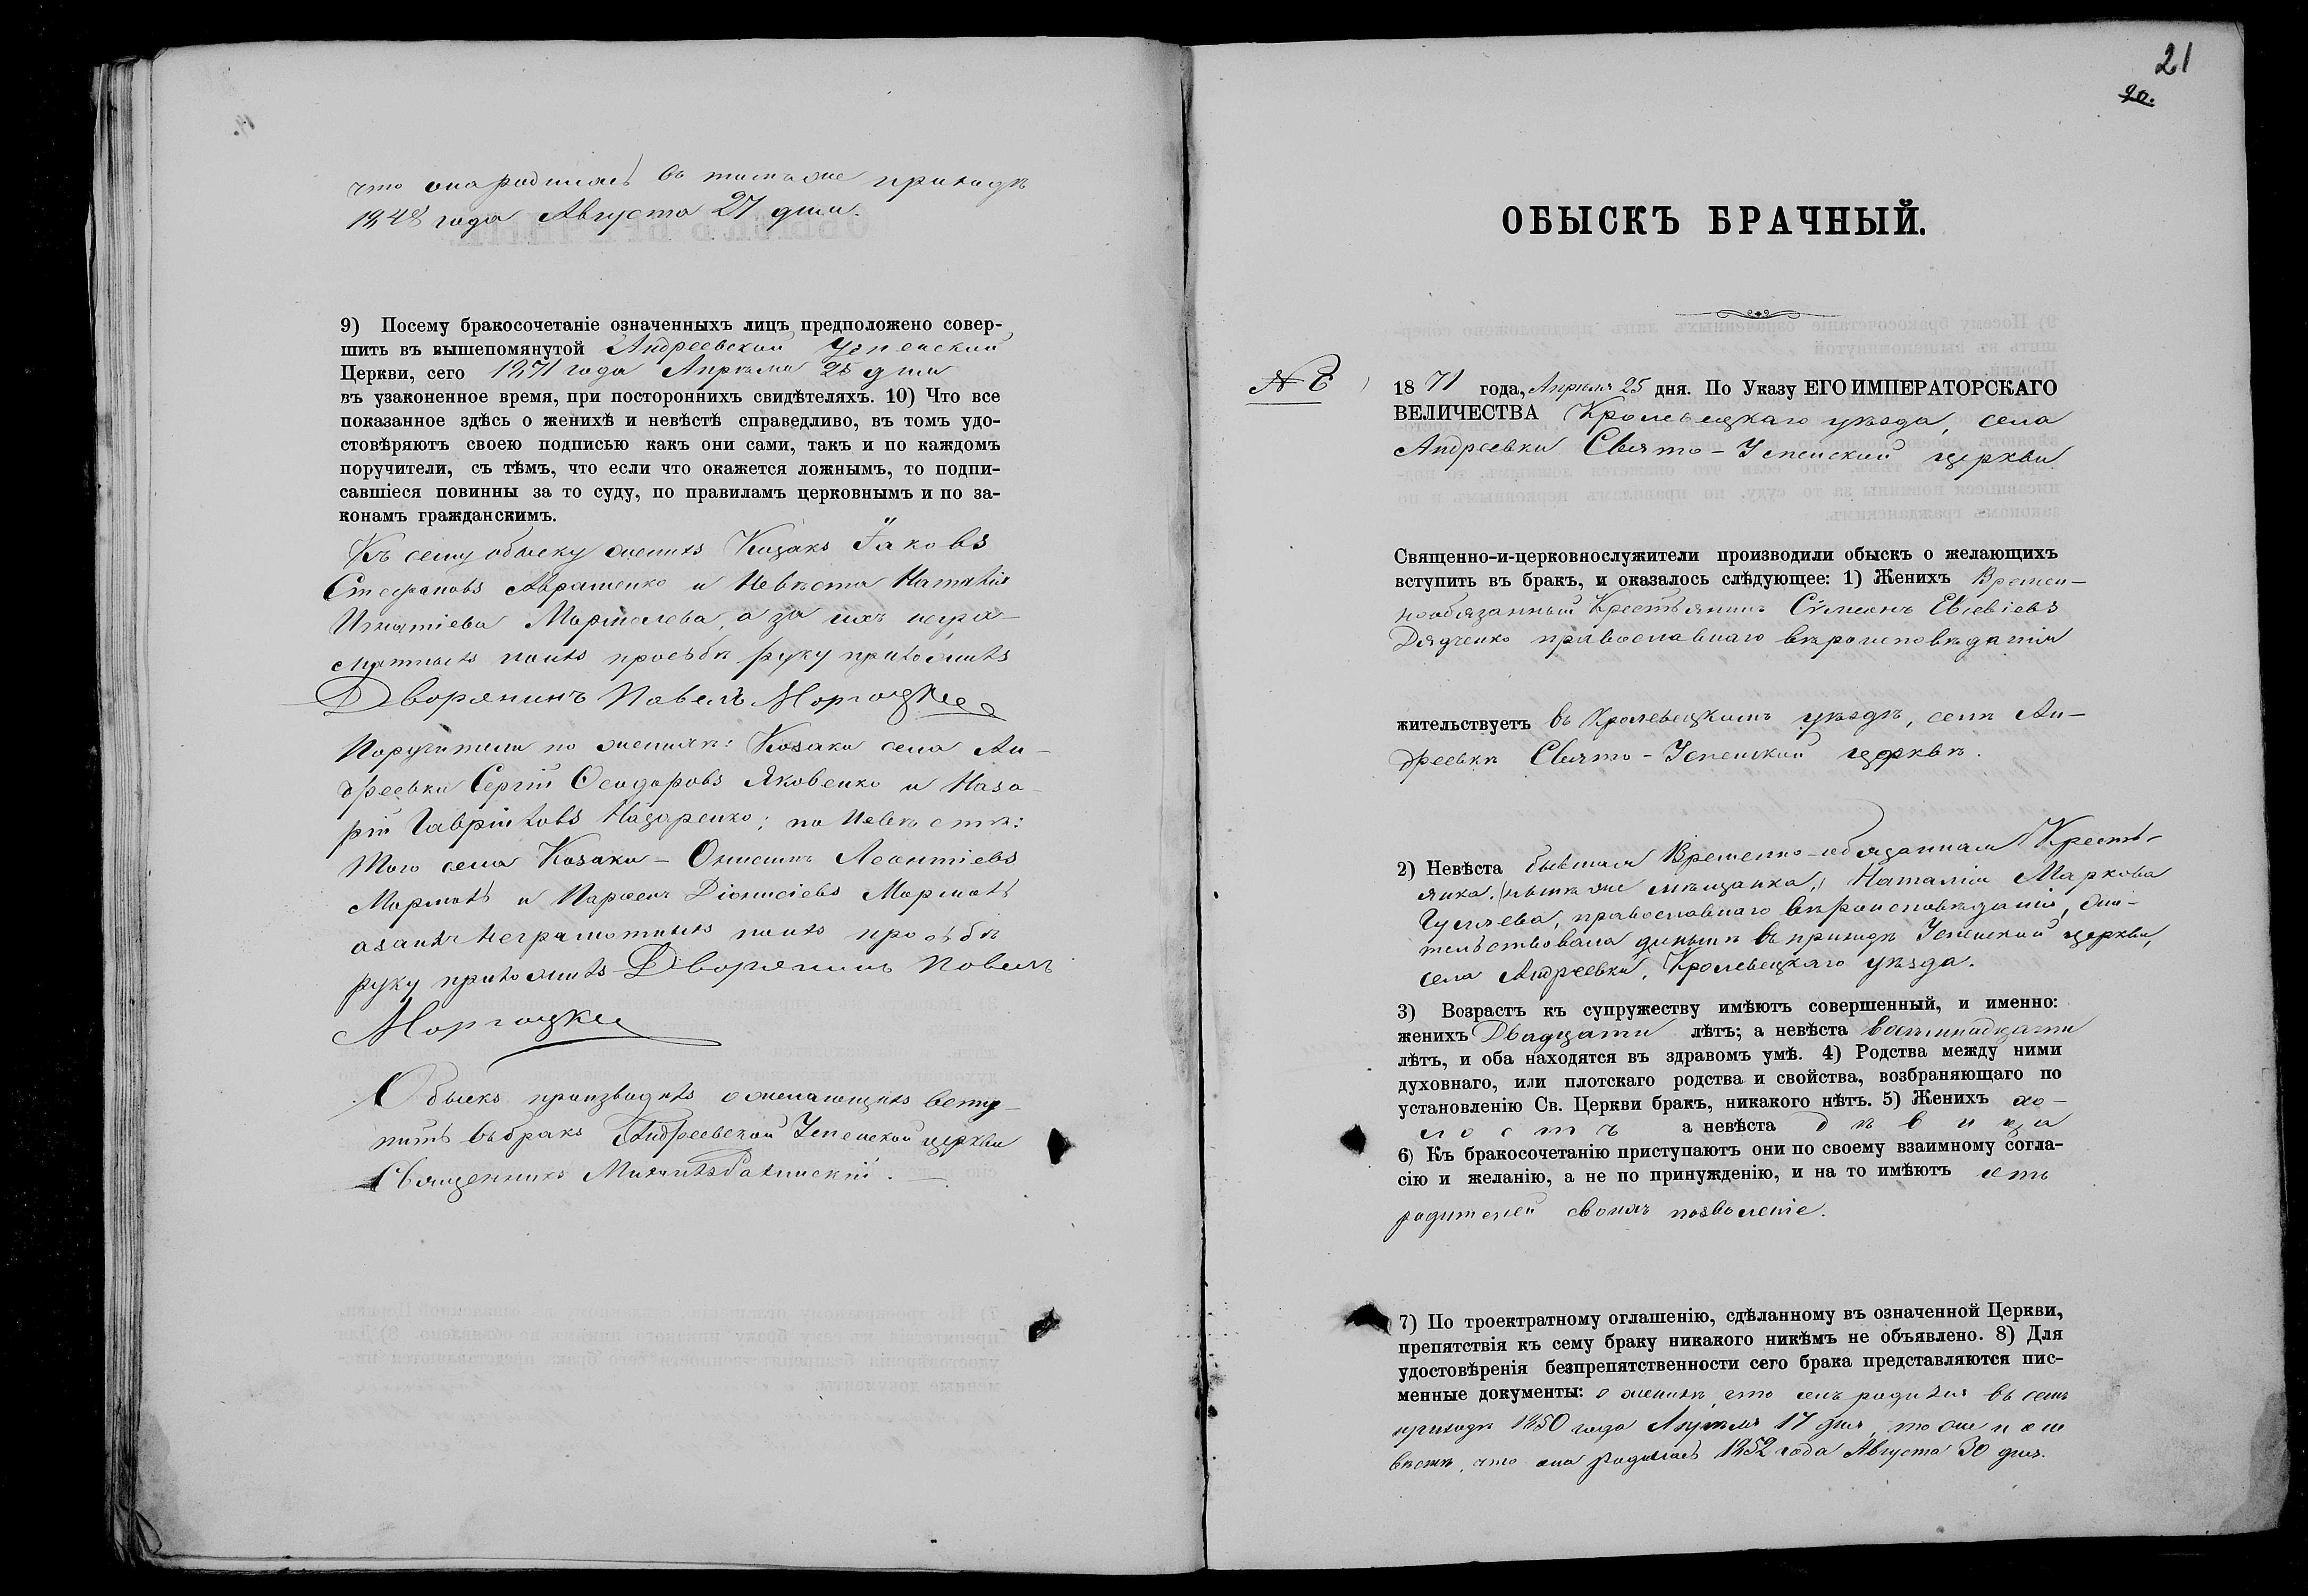 что она родилась въ томъ же приходѣ
1848 года Августа 27 дня.
9) Посему бракосочетаніе означенныхъ лицъ предположено совер-
шить въ вышепомянутой Андреевской Успенской
Церкви, сего 1871 года Апрѣля 25 дня
въ узаконенное время, при постороннихъ свидѣтеляхъ. 10) Что все
показанное здѣсь о женихѣ и невѣстѣ справедливо, въ томъ удо-
стовѣряютъ своею подписью какъ они сами, такъ и по каждомъ
поручители, съ тѣмъ, что если что окажется ложнымъ, то подпи-
савшіеся повинны за то суду, по правиламъ церковнымъ и по за-
конамъ гражданскимъ.
Къ сему обыску женихъ Козакъ Іаковъ
Стефановъ Авраменко и Невѣста Наталія
Игнатіева, а за ихъ негра-
мотныхъ поихъ просьбѣ руку приложилъ
Дворянинъ Павелъ
Поручители по женихѣ: Козаки села Ан-
дреевки Сергій Ѳеодоровъ Яковенко и Наза-
рій Гавріиловъ Назаренко; по Невѣстѣ:
того села Козаки - Онисимъ Леонтіевъ
и Парѳенъ Діонисіевъ
азанихъ неграмотныхъ поихъ просьбѣ
руку приложилъ Дворянинъ Павелъ
Обыскъ производилъ о желающихъ всту-
пить въ бракъ Андреевской Успенской церкви
Священникъ Михаилъ
21
20.
ОБЫСКЪ БРАЧНЫЙ.
№
1871 года, Апрѣля 25 дня. По Указу ЕГО ИМПЕРАТОРСКАГО
ВЕЛИЧЕСТВА Кролевецкаго уѣзда, села
Андреевки Свято-Успенской церкви
Священно-и-церковнослужители производили обыскъ о желающихъ
вступить въ бракъ, и оказалось слѣдующее: 1) Женихъ Времен-
нообязанный Крестьянинъ Симеонъ Евсевіевъ
Дядченко православнаго вѣроисповѣданія
жительствуетъ въ Кролевецкомъ уѣздѣ, селѣ Ан-
дреевкѣ Свято-Успенской церквѣ.
2) Невѣста бывшая Временно-обязанная Кресть-
янка, (нынѣ же мѣщанка,) Наталія Маркова
православнаго вѣроисповѣданія, жи-
тельствовала донынѣ въ приходѣ Успенской церкви,
села Андреевки, Кролевецкаго уѣзда.
3) Возрастъ къ супружеству имѣютъ совершенный, и именно:
женихъ Двадцати лѣтъ; а невѣста восемнадцати
лѣтъ, и оба находятся въ здравомъ умѣ. 4) Родства между ними
духовнаго, или плотскаго родства и свойства, возбраняющаго по
установленію Св. Церкви бракъ, никакого нѣтъ. 5) Женихъ хо-
лостъ а невѣста дѣвица
6) Къ бракосочетанію приступаютъ они по своему взаимному согла-
сію и желанію, а не по принужденію, и на то имѣютъ отъ
родителей своихъ позволеніе.
7) По троектратному оглашенію, сдѣланному въ означенной Церкви,
препятствія къ сему браку никакого никѣмъ не объявлено. 8) Для
удостовѣренія безпрепятственности сего брака представляются пис-
менные документы: о женихѣ, что онъ родился въ семъ
приходѣ 1850 года Апрѣля 17 дня, тоже и о не
вѣстѣ, что она родилась 1852 года Августа 30 дня.